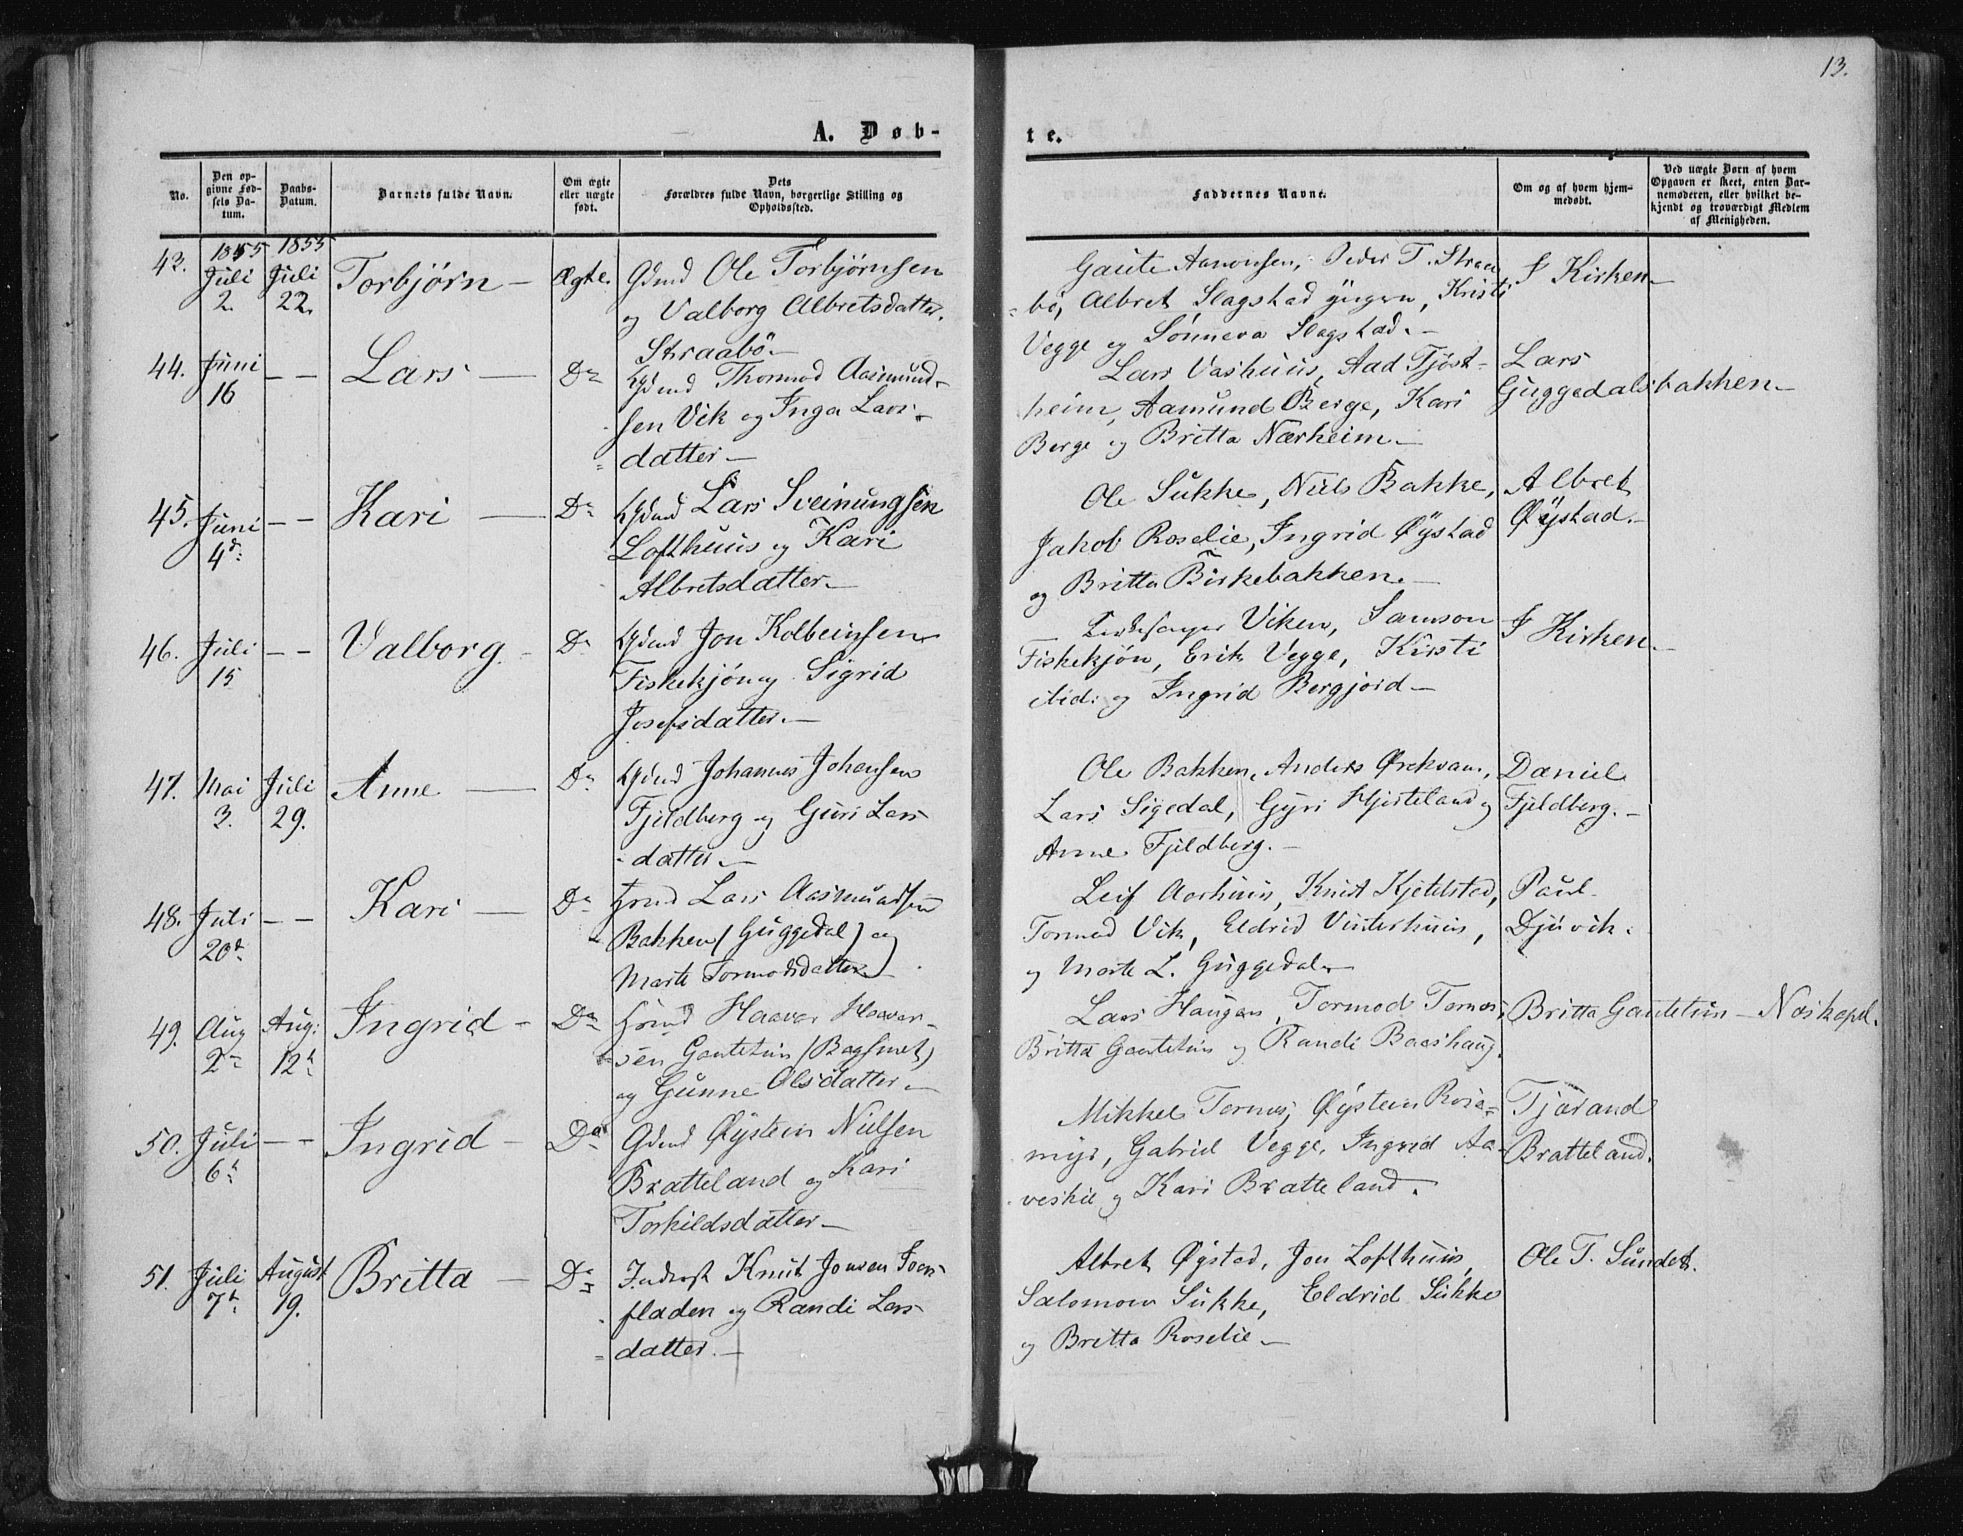 13.
A. Døb-
te.
No.
Den op-
givne Fød-
sels Da-
tum.
Daabs-
Datum.
Barnets fulde Navn.
Om ægte
eller uægte
født.
Dets
Forældres fulde Navn, borgerlige Stilling og
Opholdssted.
Faddernes Navne.
Om og af hvem hjem-
medøbt.
Ved uægte Børn af hvem
Opgaven er skeet, enten Bar-
nemoderen, eller hvilket be-
kjendt og troværdigt Medlem
af Menigheden.
43.
1855
Juli
2.
1855
Juli
22.
Torbjørn —
Ægte.
Gdmd Ole Torbjørnsen
og Valborg Albretsdatter.
Straabø. —
Gaute Aanonsen, Peder T. Straa
bø, Albret Slagstad yngre, Kristi
Vegge og Sønneva Slagstad. —
I Kirken —
44.
Juni
16
— —
Lars —
Do
Gdmd Thormod Aasmund-
sen Vik og Inga Lars-
datter —
Lars Vashuus, Aad Tjøst-
heim, Aamund Berge, Kari
Berge og Britta Nærheim —
Lars
Guggedalsbakken —
45.
Juni
4de
— —
Kari —
Do
Gdmd Lars Sveinungsen
Lofthuus og Kari
Albretsdatter. —
Ole Sukke, Niels Bakke,
Jakob Roselie, Ingrid Øystad
og Britta Birkebakken. —
Albret
Øystad. —
46.
Juli
15
— —
Valborg. —
Do
Gdmd Jon Kolbeinsen
Fiskekjøn og Sigrid
Josefsdatter. —
Kirkesanger Viken, Samson
Fiskekjøn, Erik Vegge, Kirsti
ibid: og Ingrid Bergjord —
I Kirken. —
47.
Mai
3.
Juli
29.
Anne —
Do
Gdmd Johannes Johansen
Fjeldberg og Guri Lars-
datter —
Ole Bakken, Anders Ørekvam,
Lars Sigedal, Gyri Hjorteland og
Anne Fjeldberg. —
Daniel
Fjeldberg. —
48.
Juli
20de
— —
Kari —
Do
Hmd Lars Aasmundsen
Bakken (Guggedal) og
Marte Tormodsdatter —
Leif Aarhuus, Knut Kjetelstad,
Tormod Vik, Eldrid Vinterhuus,
og Marte L. Guggedal —
Paul
Djuvik.
49.
Aug
2den
Aug:
12te
Ingrid —
Do
Hmd Haavar Haavar-
sen Gautetun (Bagsnet)
og Gunne Olsdatter —
Lars Haugen, Tormod Tornes,
Britta Gautetun og Randi Baashaug.
Britta Gautetun — Næskapel.
50.
Juli
6te
— —
Ingrid —
Do
Gdmd Øystein Nielsen
Bratteland og Kari
Torkildsdatter —
Mikkel Tornes, Øystein Rose-
myr, Gabriel Vegge, Ingrid Aa-
veskie og Kari Bratteland.
Tjørand
Bratteland.
51.
Juli
7de
August
19.
Britta —
Do
Inderst Knut Jonsen
fladen og Randi Lars-
datter. —
Albret Øystad, Jon Lofthuus,
Salomon Sukke, Eldrid Sukke
og Britta Roselie —
Ole T. Sundet.